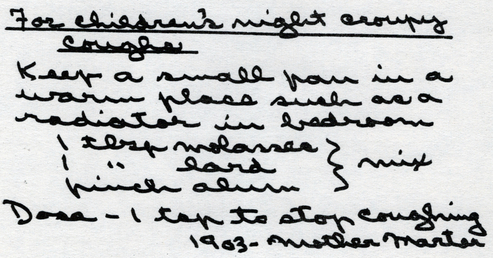 For children's night croupy
coughs
Keep a small pan in a
warm place such as a
radiator in bedroom
1 tbsp molasses } mix
1 " lard
pinch alum
Dose - 1 tsp to stop coughing
1903 - Mother Marter